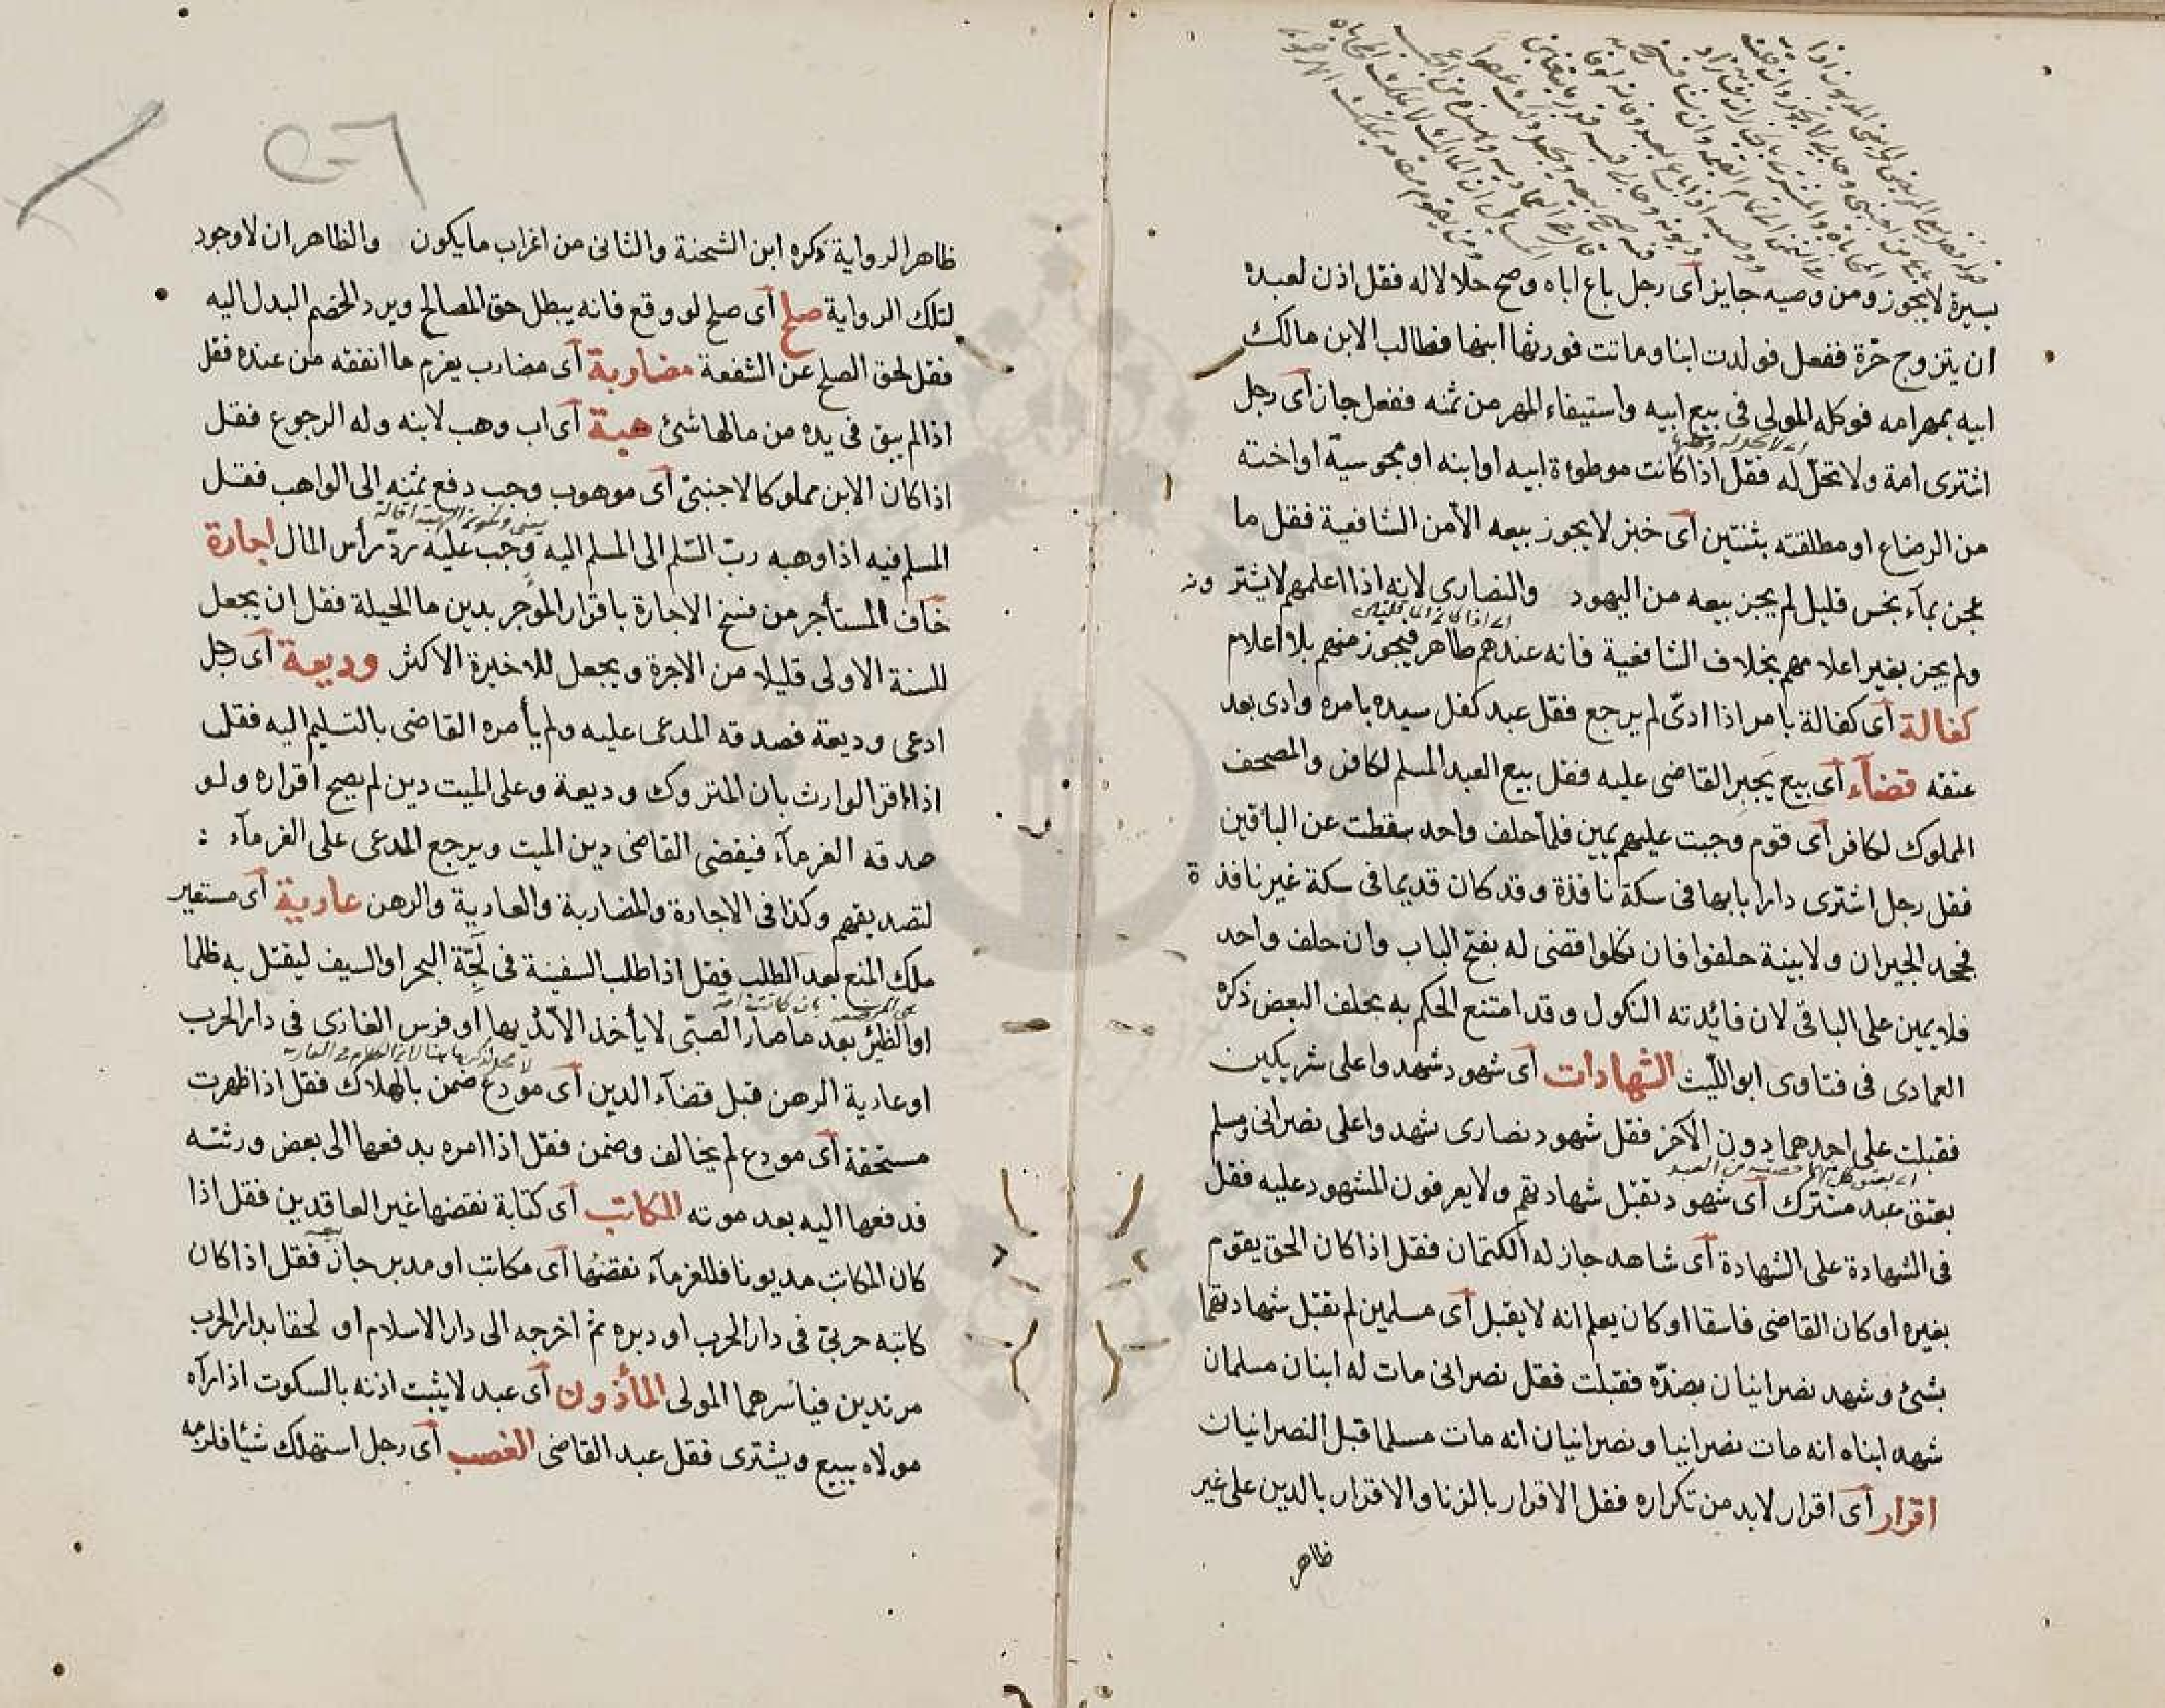 يسيرة لا يجوز ومن وصيه جايز أى رجل باع اباه وصح حلالا له فقل اذن لعبده
ان يتزوج حرّة ففعل فولدت ابنا وماتت فورثها ابنها فطالب الابن مالك
ابيه بمهر امه فوكله المولى فى بيع ابيه واستيفاء المهر من ثمنه ففعل جاز أى رجل
اشترى امة ولا تحلّ له فقل اذا كانت موطوءة ابيه او ابنه او مجوسية او اخته
من الرضاع او مطلقته بثنتين أى خبز لا يجوز بيعه الا من الشافعية فقل ما
عجن بماء نجس قليل لم يجز بيعه من اليهود والنصارى لانه اذا اعلمهم لا يشترونه
ولم يجز بغير اعلامهم بخلاف الشافعية فانه عندهم طاهر فيجوز منهم بلا اعلام
كفالة أى كفالة بامر اذا ادىّ لم يرجع فقل عبد كفل سيده بامره وادى بعد
عتقه قضآء أى بيع يَجبِر القاضى عليه فقل بيع العبد المسلم لكافر والمصحف
المملوك لكافر أى قوم وجبت عليهم يمين فلما حلف واحد سقطت عن الباقين
فقل رجل اشترى دارا بابها فى سكة نافذة وقد كان قديما فى سكة غير نافذة
فجحد الجيران ولا بينة حلفوا فان نكلوا قضى له بفتح الباب وان حلف واحد
فلا يمين على الباقى لان فائدته النكول وقد امتنع الحكم به بحلف البعض ذكره
العمادى فى فتاوى ابو اللّيث الشهادات أى شهود شهدوا على شريكين
فقبلت على احدهما دون الآخر فقل شهود نصارى شهدوا على نصرانى ومسلم
بعتق عبد مشترك أى شهود تقبّل شهادتهم ولا يعرفون المشهود عليه فقل
فى الشهادة على الشهادة أى شاهد جاز له الكتمان فقل اذا كان الحق يقوم
بغيره او كان القاضى فاسقا او كان يعلم انه لا يقبل أى مسلمين لم تقبّل شهادتهما
بشئ وشهد نصرانيان بضدّه فقبلت فقل نصرانى مات له ابنان مسلمان
شهد ابناه انه مات نصرانيا ونصرانيان انه مات مسلما قبل النصرانيان
اقرار أى اقرار لا بد من تكراره فقل الاقرار بالزنا والاقرار بالدين على غير
ظاهر
ظاهر الرواية ذكره ابن الشحنة والثانى من اغراب ما يكون والظاهر ان لا وجود
لتلك الرواية صلح أى صلح لو وقع فانه يبطل حق المصالح ويرد الخصم البدل اليه
فقل لحق الصلح عن الشفعة مضاربة أى مضارب يغرم ما انفقه من عنده فقل
اذا لم يبق فى يده من مالها شئ هبة أى اب وهب لابنه وله الرجوع فقل
اذا كان الابن مملوكا لاجنبىّ أى موهوب وجب دفع ثمنه الى الواهب فقل
المسلم فيه اذا وهبه ربّ السّلم الى المسلم اليه وجب عليه ردّ رأس المال اجارة
خاف المستأجر من فسخ الاجارة باقرار المؤجر بدين ما الحيلة فقل ان يجعل
للسنة الاولى قليلا من الاجرة ويجعل للاخيرة الاكثر وديعة أى رجل
ادعى وديعة فصدقه المدعى عليه ولم يأمره القاضى بالتسليم اليه فقل
اذا اقر الوارث بان المتروك وديعة وعلى الميت دين لم يصح اقراره ولو
صدقه الغرمآء فيقضى القاضى دين الميت ويرجع المدعى على الغرمآء :
لتصديقهم وكذا فى الاجارة والمضاربة والعارية والرهن عارية أى مستعير
ملك المنع بعد الطلب فقل اذا طلب السفينة فى لجّة البحر او السيف ليقتل به ظلما
او الظئر بعد ما صار الصبّى لا يأخذ الا ثديها او فرس الغازى فى دار الحرب
او عارية الرهن قبل قضآء الدين أى مودع ضمن بالهلاك فقل اذا ظهرت
مستحقة أى مودع لم يخالف وضمن فقل اذا امره بدفعها الى بعض ورثته
فدفعها اليه بعد موته المكاتب أى كتابة نقضها غير العاقدين فقل اذا
كان المكاتب مديونا فللغرمآء نقضها أى مكاتب او مدبر جاز فقل اذا كان
كاتبه حربىّ فى دار الحرب او دبره ثم اخرجه الى دار الاسلام او لحقا بدار الحرب
مرتدين فيأسرهما المولى المأذون أى عبد لا يثبت اذنه بالسكوت اذا رآه
مولاه يبيع ويشترى فقل عبد القاضى الغصب أى رجل استهلك شيئا فلزمه